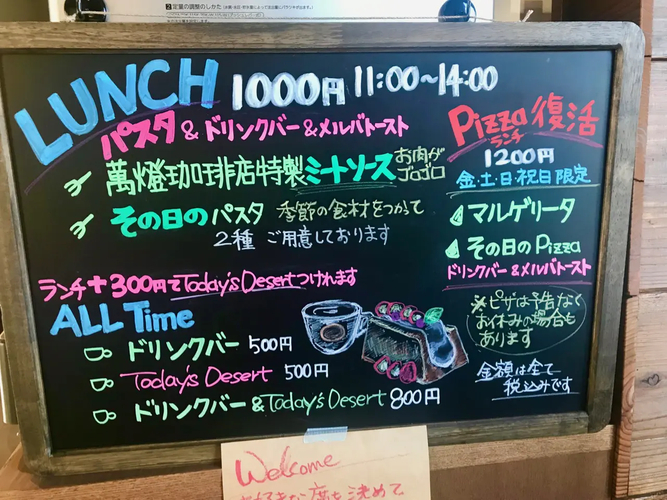 2 定量の調整のしかた
LUNCH 1000円 11:00~14:00
パスタ & ドリンクバー & メルバトースト
萬燈珈琲店特製 ミートソース お肉がゴロゴロ
その日のパスタ 季節の食材をつかって
2種 ご用意しております
ランチ+300円で Today's Desert つけれます
ALL Time
ドリンクバー 500円
Today's Desert 500円
ドリンクバー & Today's Desert 800円
Pizza 復活
ランチ
1200円
金・土・日・祝日限定
マルゲリータ
その日の Pizza
ドリンクバー & メルバトースト
※ピザは予告なく
お休みの場合も
あります
金額は全て
税込みです
Welcome
お好きな席を決めて